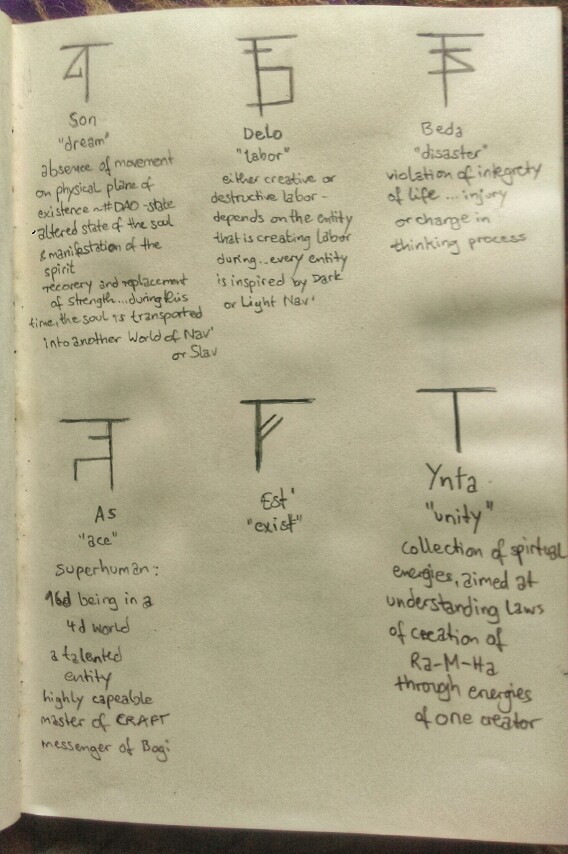 Son
"dream"
absence of movement
on physical plane of
existence ~#DAO-state
altered state of the soul
& manifestation of the
spirit
recorery and replacement
of strength...during this
time, the soul is transported
into another World of Nav'
or Slav
Delo
"labor"
either creative or
destructive labor -
depends on the entity
that is creating labor
during..every entity
is inspired by Dark
or Light Nav'
Beda
"disaster"
violation of integrety
of life ... injury
or change in
thinking process
As
"ace"
superhuman:
16d being in a
4d world
a talented
entity
highly capeable
master of CRAFT
messenger of Bogi
Est'
"exist"
Ynta
"unity"
collection of spirtual
energies, aimed at
understanding laws
of creation of
Ra-M-Ha
through energies
of one creator